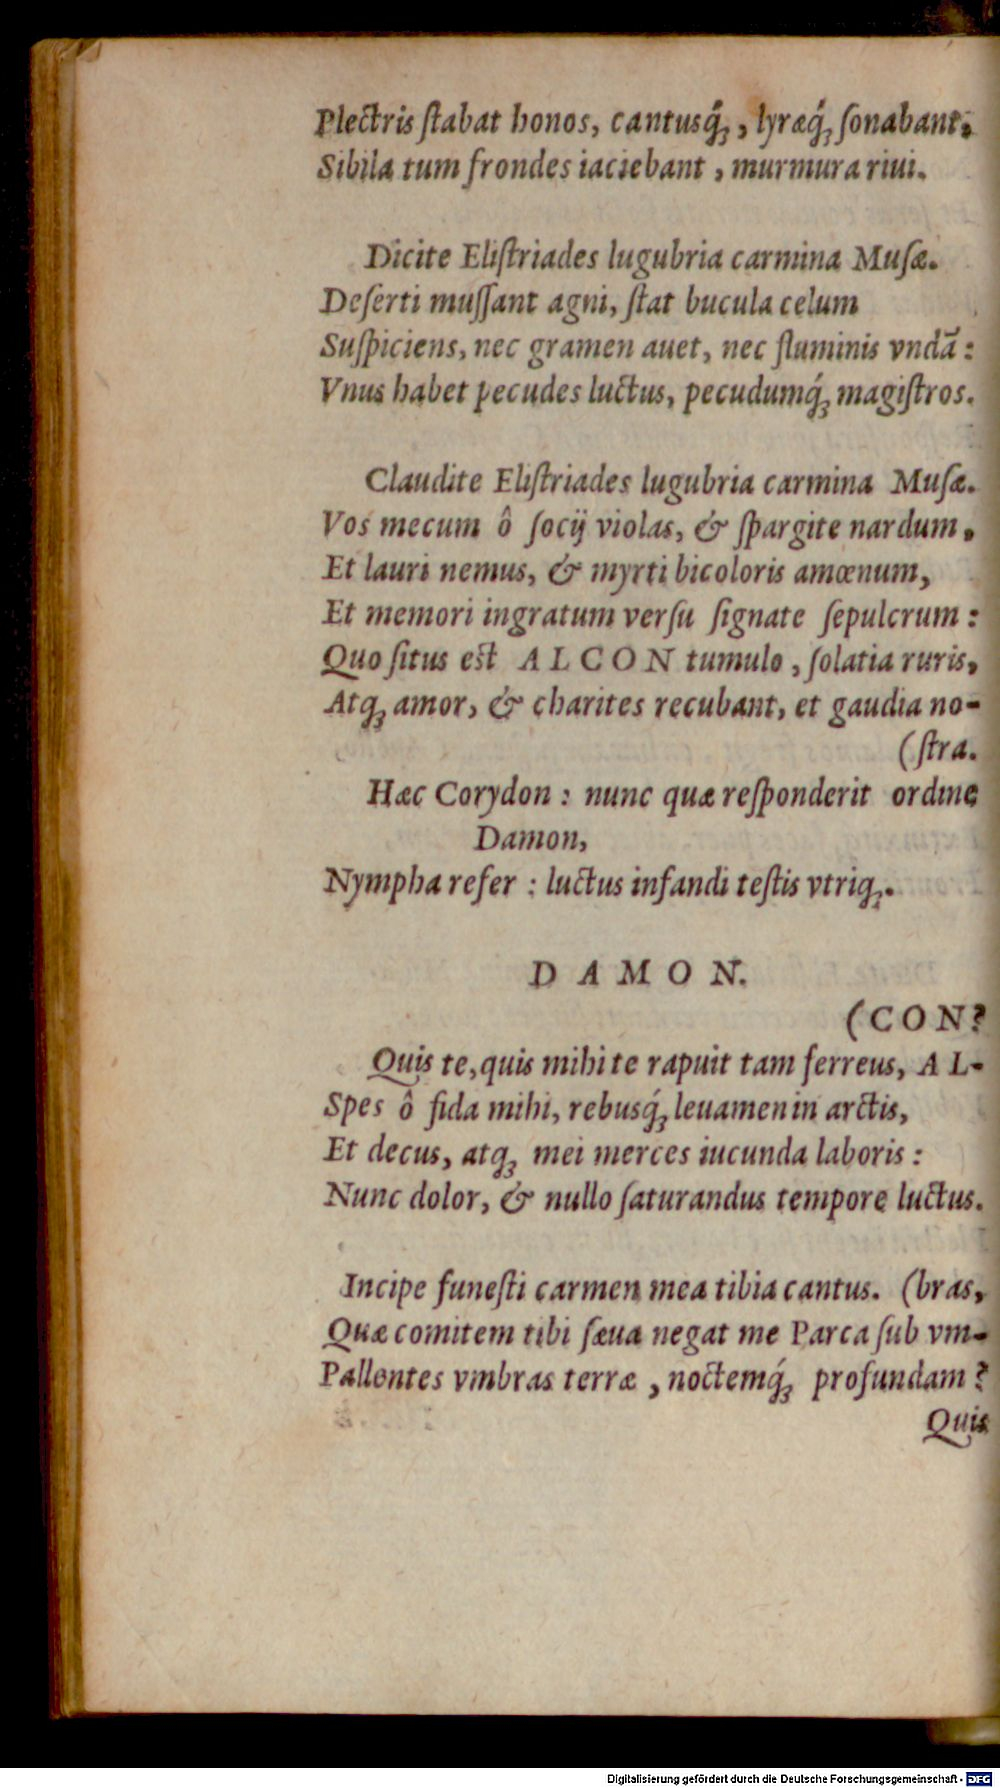 Plectris ſtabat honos, cantusq́ꝫ, lyræq́ꝫ ſonabant,
Sibila tum frondes iaciebant, murmura riui.
Dicite Eliſtriades lugubria carmina Muſæ.
Deſerti muſſant agni, ſtat bucula celum
Suſpiciens, nec gramen auet, nec fluminis vndã:
Vnus habet pecudes luctus, pecudumq́ꝫ magiſtros.
Claudite Eliſtriades lugubria carmina Muſæ.
Vos mecum ô ſocij violas, & ſpargite nardum,
Et lauri nemus, & myrti bicoloris amœnum,
Et memori ingratum verſu ſignate ſepulcrum:
Quo ſitus est ALCON tumulo, ſolatia ruris,
Atqꝫ amor, & charites recubant, et gaudia no-
(ſtra.
Hæc Corydon: nunc quæ reſponderit ordine
Damon,
Nympha refer: luctus infandi teſtis vtriqꝫ.
DAMON.
(CON?
Quis te, quis mihi te rapuit tam ferreus, AL-
Spes ô fida mihi, rebusq́ꝫ leuamen in arctis,
Et decus, atqꝫ mei merces iucunda laboris:
Nunc dolor, & nullo ſaturandus tempore luctus.
Incipe funeſti carmen mea tibia cantus. (bras,
Quæ comitem tibi ſæua negat me Parca ſub vm-
Pallentes vmbras terræ, noctemq́ꝫ profundam?
Quis
Digitalisierung gefördert durch die Deutsche Forschungsgemeinschaft - DFG